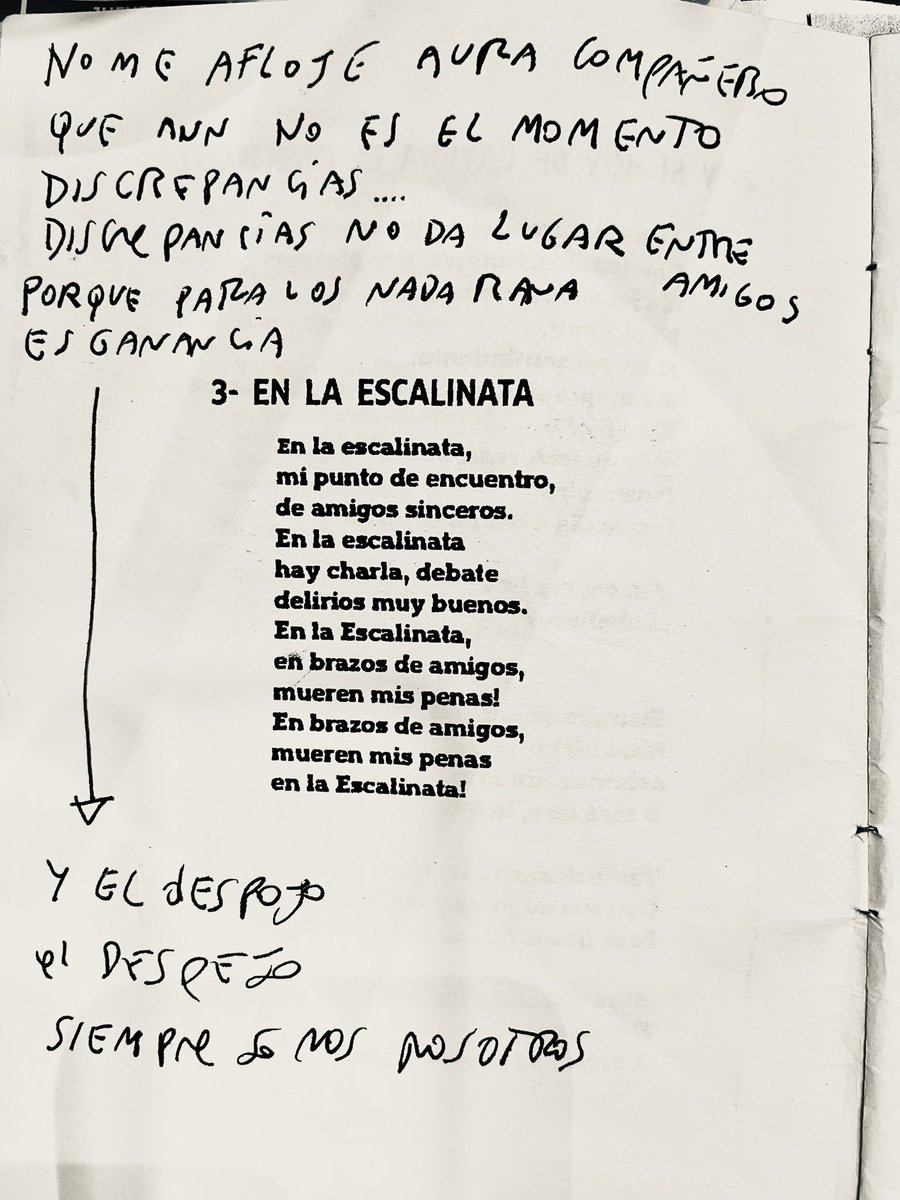 NO ME AFLOJE AURA COMPAÑERO
QUE AUN NO ES EL MOMENTO
DISCREPANCIAS....
DISCREPANCIAS NO DA LUGAR ENTRE
AMIGOS
PORQUE PARA LOS NADA
ES GANANCIA
3- EN LA ESCALINATA
En la escalinata,
mi punto de encuentro,
de amigos sinceros.
En la escalinata
hay charla, debate
delirios muy buenos.
En la Escalinata,
en brazos de amigos,
mueren mis penas!
En brazos de amigos,
mueren mis penas
en la Escalinata!
Y EL dESPOJO
el DESPEJO
SIEMPRE SOMOS NOSOTROS